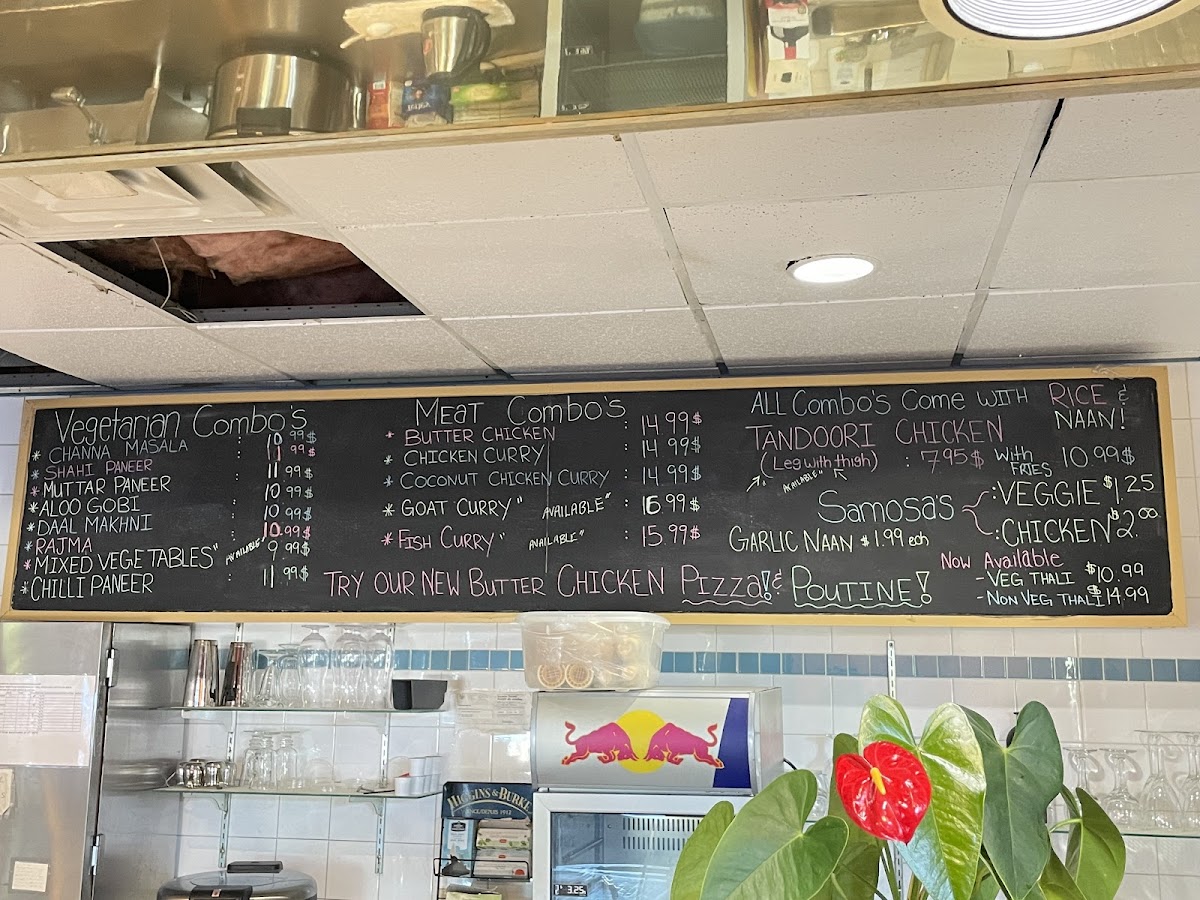 Vegetarian Combo's
* CHANNA MASALA : 10 99$
* SHAHI PANEER : 11 99$
* MUTTAR PANEER : 11 99$
* ALOO GOBI : 10 99$
* DAAL MAKHNI : 10 99$
* RAJMA : 10.99$
* MIXED VEGETABLES" AVAILABLE" : 9 99$
* CHILLI PANEER : 11 99$
MEAT Combo's
* BUTTER CHICKEN : 14 99$
* CHICKEN CURRY : 14 99$
* COCONUT CHICKEN CURRY : 14.99$
* GOAT CURRY" AVAILABLE" : 16 99$
* FISH CURRY" AVAILABLE" : 15.99$
TRY OUR NEW BUTTER CHICKEN PIZZA! & POUTINE!
ALL Combo's Come WITH RICE & NAAN!
TANDOORI CHICKEN
(Leg with thigh) : 7.95$ With FRIES 10.99$
AVAILABLE"
Samosa's :VEGGIE $1.25
:CHICKEN $2.00
GARLIC NAAN $1.99 ech
Now Available
- VEG THALI $10.99
- NON VEG THALI $14.99
HIGGINS & BURKE
3.25